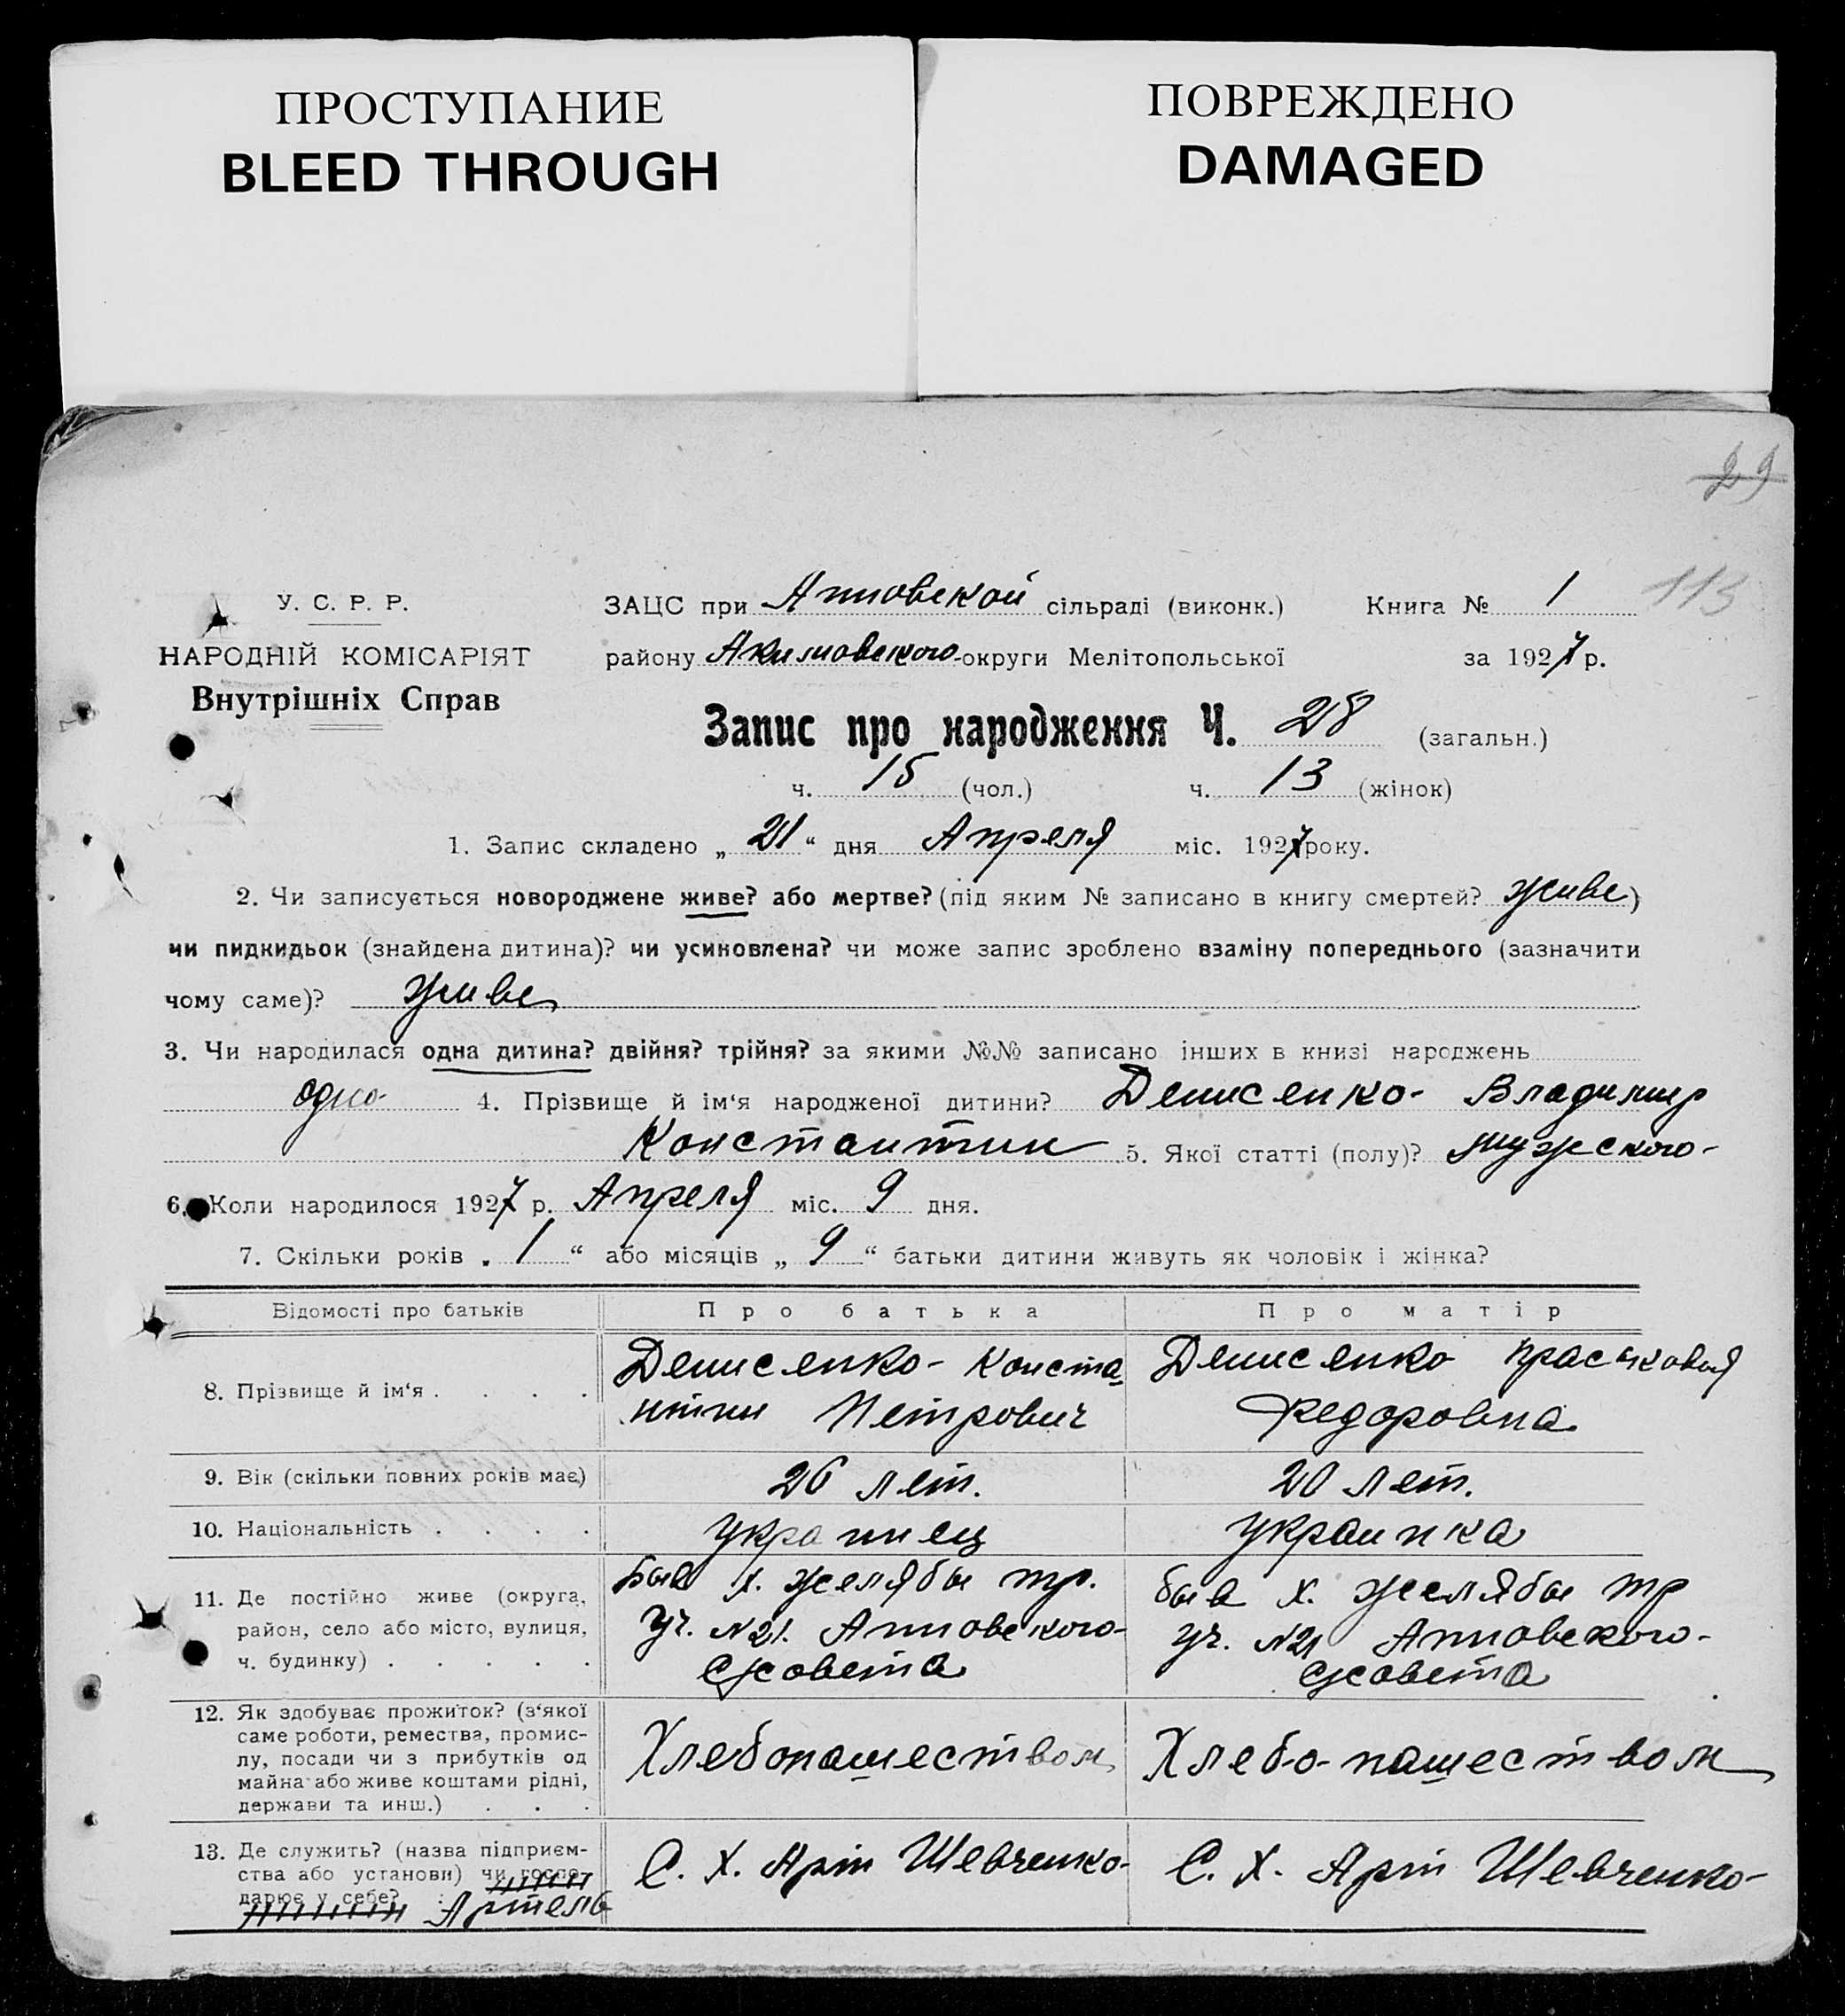 ПРОСТУПАНИЕ
BLEED THROUGH
ПОВРЕЖДЕНО
DAMAGED
29
113
У. С. Р. Р.
НАРОДНІЙ КОМІСАРІЯТ
Внутрішніх Справ
ЗАЦС при Анновской сільраді (виконк.) Книга № 1
району Акимовского округи Мелітопольської за 1927 р.
Запис про народження Ч. 28 (загальн.)
ч. 15 (чол.) ч. 13 (жінок)
1. Запис складено „ 21 “ дня Апреля міс. 1927 року.
2. Чи записується новороджене живе? або мертве? (під яким № записано в книгу смертей? живе)
чи пидкидьок (знайдена дитина)? чи усиновлена? чи може запис зроблено взаміну попереднього (зазначити
чому саме)? живе
3. Чи народилася одна дитина? двійня? трійня? за якими №№ записано інших в книзі народжень
одно 4. Прізвище й ім‘я народженої дитини? Денисенко- Владимир
Константин 5. Якої статті (полу)? мужского-
6. Коли народилося 1927 р. Апреля міс. 9 дня.
7. Скільки років „ 1 “ або місяців „ 9 “ батьки дитини живуть як чоловік і жінка?
Відомості про батьків Про батька Про матір
8. Прізвище й ім‘я . . . .
Денисенко- Конста-
нтин Петрович
Денисенко Праськовия
Федоровна
9. Вік (скільки повних років має) 26 лет. 20 лет.
10. Національність . . . . украинец украинка
11. Де постійно живе (округа,
район, село або місто, вулиця,
ч. будинку) . . . . .
быв х. Желябы тр.
уч. №21. Анновского-
с/совета
быв х. Желябы тр
уч. №21 Анновского-
с/совета
12. Як здобуває прожиток? (з‘якої
саме роботи, ремества, промис-
лу, посади чи з прибутків од
майна або живе коштами рідні,
держави та инш.) . . .
Хлебопашеством
Хлебо-пашеством
13. Де служить? (назва підприєм-
ства або установи) чи госпо-
дарює у себе? Артель
С. Х. Арт Шевченко-
С. Х. Арт Шевченко-